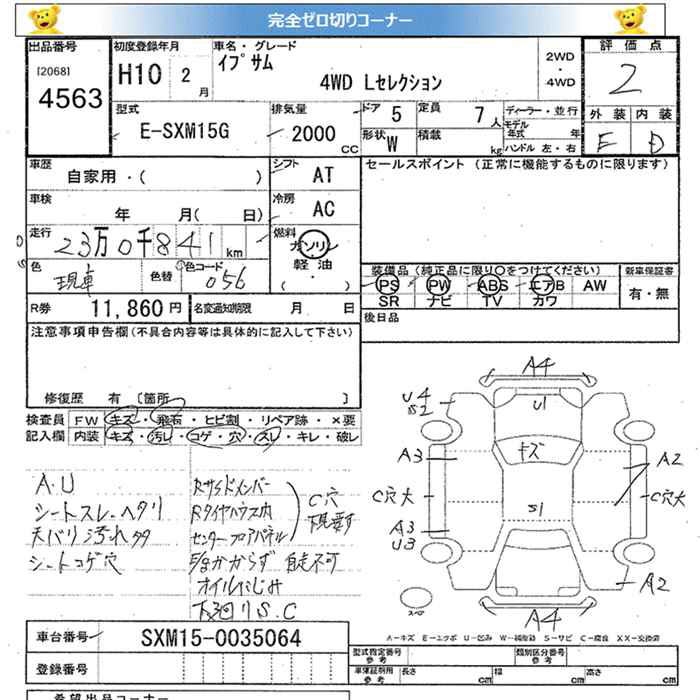 完全ゼロ切りコーナー
出品番号
[2068]
4563
初度登録年月
H10 2 月
車名・グレード
イプサム
4WD Lセレクション
2WD
・
4WD
評価点
2
外装 内装
E D
型式
E-SXM15G
排気量
2000 CC
ドア 5
定員 7 人
形状 W
積載 kg
ディーラー・並行
モデル年式 年
ハンドル 左・右
車歴
自家用・( )
シフト AT
セールスポイント (正常に機能するものに限ります)
車検
年 月( 日)
冷房 AC
走行
23万0千841 km
燃料
ガソリン
軽油
( ・ )
色
現車
色替
色コード
056
装備品(純正品に限り○をつけてください)
新車保証書
PS PW ABS エアB AW
SR ナビ TV カワ
有・無
R券 11,860 円
名変通知期限 月 日
後日品
注意事項申告欄(不具合内容等は具体的に記入して下さい)
修復歴 有 〔箇所 〕
検査員 FW キズ・飛石・ヒビ割・リペア跡・×要
記入欄 内装 キズ・汚レ・コゲ・穴・スレ・キレ・破レ
A.U
シートスレ.ヘタリ
天バリ汚れタタ
シートコゲ穴
Rサイドメンバー
Rタイヤハウス内
センターフロアパネル
C穴
下見要す
E/gかからず 自走不可
オイルにじみ
下廻りS.C
A4
U4
S2
U1
キズ
A3
A2
C穴大
S1
C穴大
A3
U3
A2
スペア
A4
A-キズ E-エクボ U-凹み W-補修跡 S-サビ C-腐食 XX-交換済
車台番号 SXM15-0035064
登録番号
型式指定番号
参考
類別区分番号
参考
車庫証明用
参考
長さ cm 幅 cm 高さ cm
希望出品コーナー